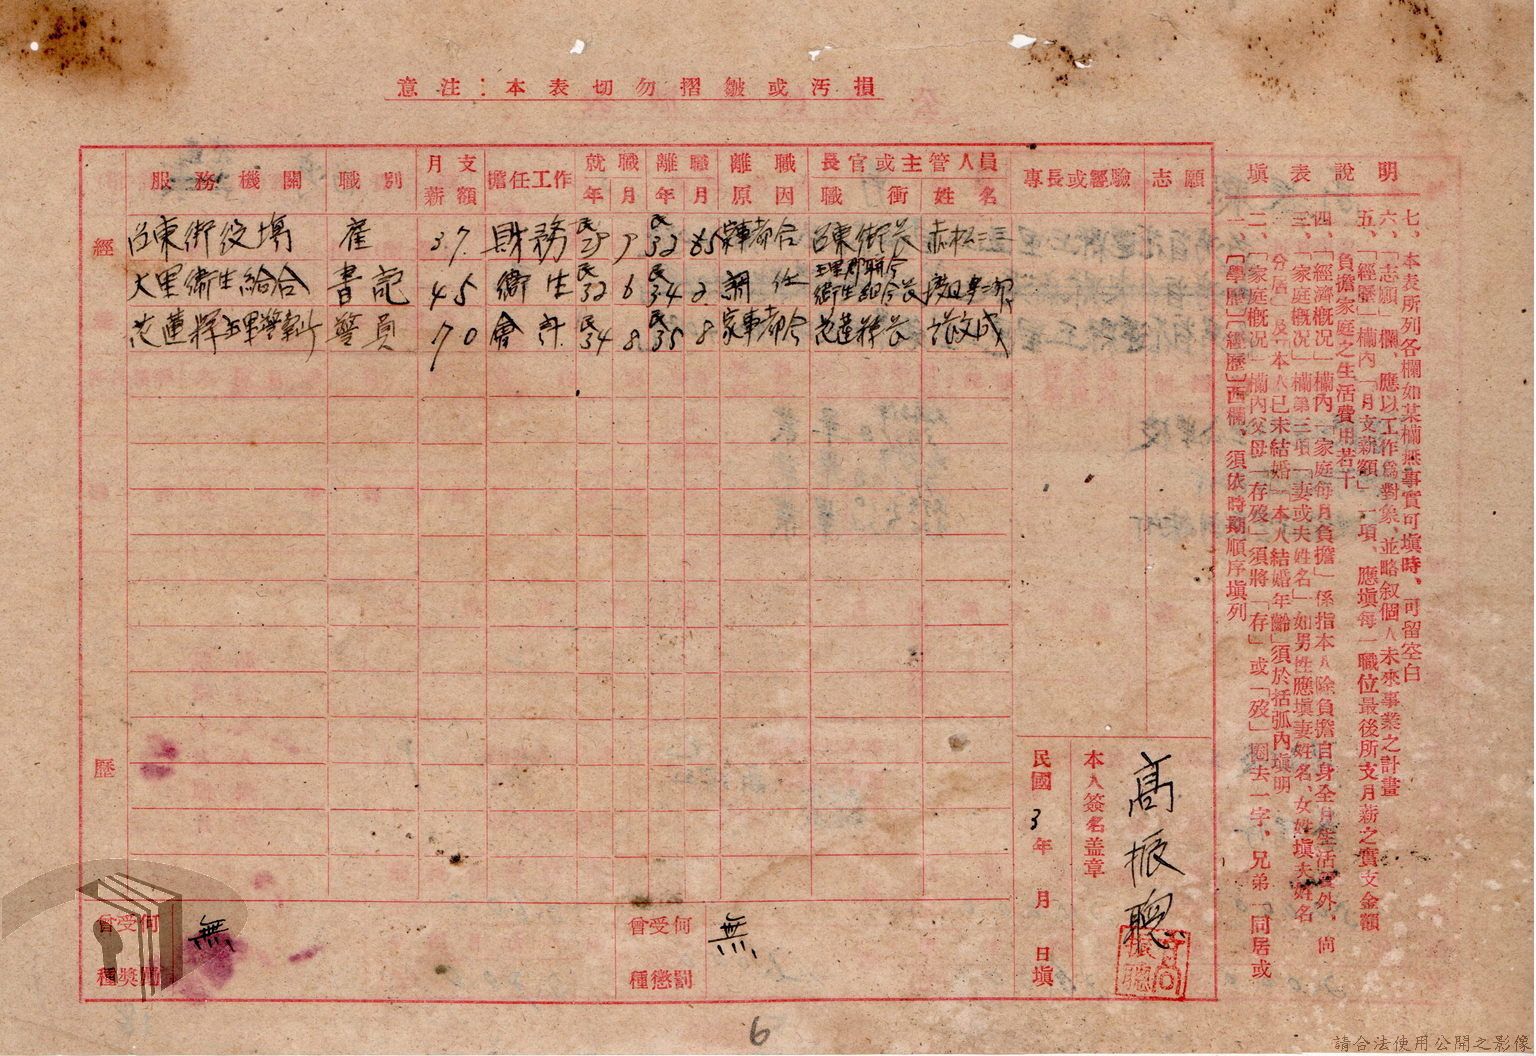 意注：本表切勿摺皺或汚損
經歷
服務機關 職別 月支薪額 擔任工作 就職年月 離職年月 離職原因 長官或主管人員 職銜 姓名 專長或經驗 志願
街役場 雇 37. 財務 民29 9 民32 家事都合 街長 赤松
大里衛生組合 書記 45 衛生 民32 6 民34 2 調任 衛生組合長
花蓮 警員 70 會計 民34 8 民35 8 家事都合 花蓮 長 張文成
曾受何種獎勵 無
曾受何種懲罰 無
本人簽名盖章 高振聰
民國 3 年 月 日填
填表說明
一、「學歷」「經歷」兩欄、須依時期順序填列
二、「家庭槪况」欄內父母「存歿」須將「存」或「歿」圈去一字、兄弟「同居或分居」及「本人已未結婚」「本人結婚年齡」須於括弧內填明
三、「家庭槪况」欄第三項「妻或夫姓名」如男性應填妻姓名、女姓填夫姓名
四、「經濟槪况」欄內「家庭每月負擔」係指本人除負擔自身全月生活費外，尙負擔家庭之生活費用若干
五、「經歷」欄內「月支薪額」一項、應填每一職位最後所支月薪之實支金額
六、「志願」欄、應以工作爲對象、並略叙個人未來事業之計畫
七、本表所列各欄如某欄無事實可填時、可留空白
6
請合法使用公開之影像